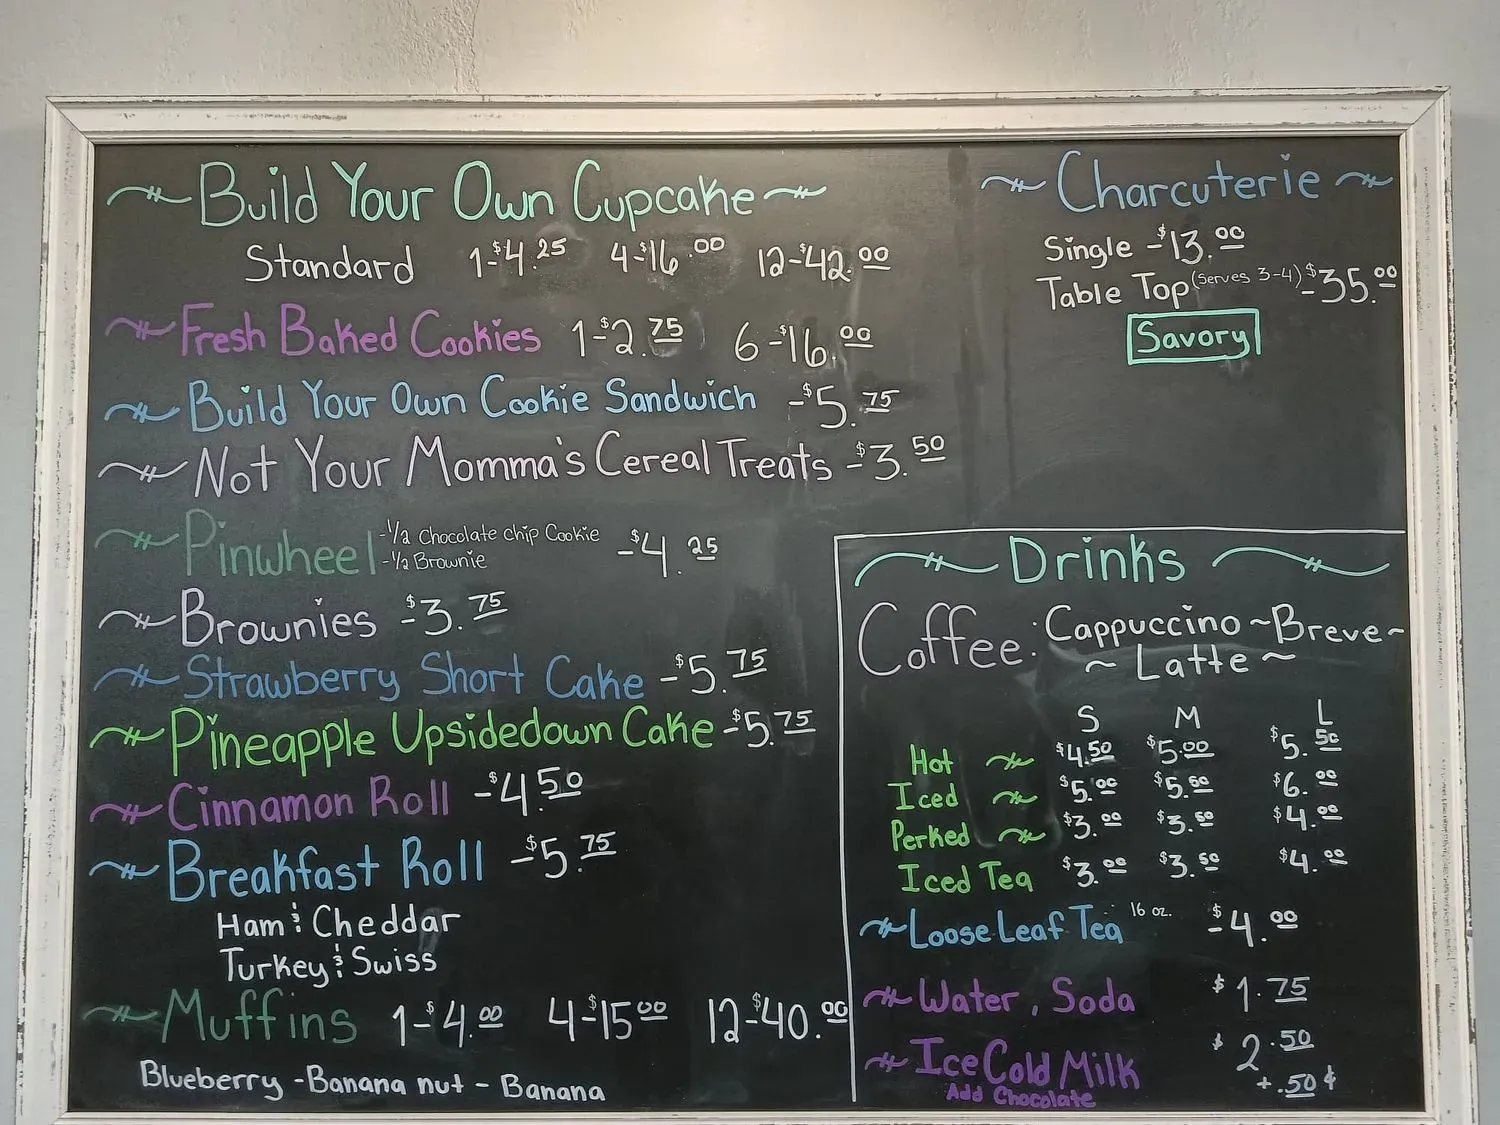 Build Your Own Cupcake
Standard 1-$4.25 4-$16.00 12-$42.00
Fresh Baked Cookies 1-$2.75 6-$16.00
Build Your Own Cookie Sandwich -$5.75
Not Your Momma's Cereal Treats -$3.50
Pinwheel -1/2 Chocolate chip Cookie -$4.25
-1/2 Brownie
Brownies -$3.75
Strawberry Short Cake -$5.75
Pineapple Upsidedown Cake -$5.75
Cinnamon Roll -$4.50
Breakfast Roll -$5.75
Ham & Cheddar
Turkey & Swiss
Muffins 1-$4.00 4-$15.00 12-$40.00
Blueberry - Banana nut - Banana
Charcuterie
Single -$13.00
Table Top (serves 3-4) -$35.00
Savory
Drinks
Coffee: Cappuccino ~ Breve ~
~ Latte ~
S M L
Hot $4.50 $5.00 $5.50
Iced $5.00 $5.50 $6.00
Perked $3.00 $3.50 $4.00
Iced Tea $3.00 $3.50 $4.00
Loose Leaf Tea 16 oz. -$4.00
Water, Soda $1.75
Ice Cold Milk $2.50
Add Chocolate +.50¢